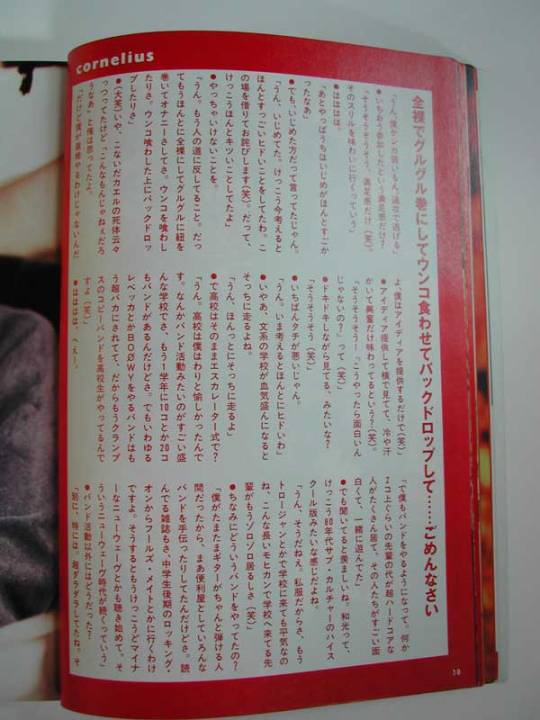 cornelius
全裸でグルグル巻にしてウンコ食わせてバックドロップして……ごめんなさい
「うん。僕ケンカ弱いもん。遠衣で逃げる」
●いちおう参加したという満足感だけ?
「そうそうそうそう。満足感だけ(笑)。
そのスリルを味わいに行くっていう」
●ははは。
「あとやっぱうちはいじめがほんとすごか
ったなあ」
●でも、いじめた方だって言ってたじゃん。
「うん。いじめてた。けっこう今考えると
ほんとすっごいヒドいことをしてたわ。こ
の場を借りてお詫びします(笑)。だって、
けっこうほんとキツいことしてたよ」
●やっちゃいけないことを。
「うん。もう人の道に反してること。だっ
てもうほんとに全裸にしてグルグルに紐を
巻いてオナニーさしてさ。ウンコを喰わし
たりさ。ウンコ喰わした上にバックドロッ
プしたりさ」
●(大笑)いや、こないだカエルの死体云々
つってたけど「こんなもんじゃねぇだろ
うなあ」と俺は思ってたよ。
「だけど僕が直接やるわけじゃないんだ
よ、僕はアイディアを提供するだけで(笑)」
●アイディア提供して横で見てて、冷や汗
かいて興奮だけ味わってるという?(笑)。
「そうそうそう!『こうやったら面白いん
じゃないの?』って(笑)」
●ドキドキしながら見てる、みたいな?
「そうそうそう(笑)」
●いちばんタチが悪いじゃん。
「うん。いま考えるとほんとにヒドいわ」
●いやあ、文系の学校が血気盛んになると
そっちに走るよね。
「うん、ほんっとにそっちに走るよ」
●で高校はそのままエスカレーター式で?
「うん。高校は僕はわりと愉しかったんで
す。なんかバンド活動みたいのがすごい盛
んな学校でさ、もう1学年に10コとか20コ
もバンドがあるんだけどさ。でもいわゆる
レベッカとかBOØWYをやるバンドはも
う超バカにされてて、だからもうクランプ
スのコピーバンドを高校生がやってるんで
すよ(笑)」
●ははは、へぇー。
「で僕もバンドをやるようになって。何か
2コ上ぐらいの先輩の代が超ハードコアな
人がたくさん居て、その人たちがすごい面
白くて、一緒に遊んでた」
●でも聞いてると羨ましいね。和光って、
けっこう80年代サブ・カルチャーのハイス
クール版みたいな感じだよね。
「うん、そうだねえ。私服だからさ、もう
トロージャンとかで学校に来ても平気なの
ね、こんな長いモヒカンで学校へ来てる先
輩がもうゾロゾロ居るしさ(笑)」
●ちなみにどういうバンドをやってたの?
「僕がたまたまギターがちゃんと弾ける人
間だったから、まあ便利屋としていろんな
バンドを手伝ったりしてたんだけどさ。読
んでる雑誌もさ、中学生後期のロッキング・
オンからフールズ・メイトとかに行くわけ
ですよ。そうするともうけっこうどマイナ
ーなニューウェーヴとかも聴き始めて。そ
ういうニューウェーヴ時代が続くっていう」
●バンド活動以外にはどうだった?
「別に、特には。超ダラダラしてたね。そ